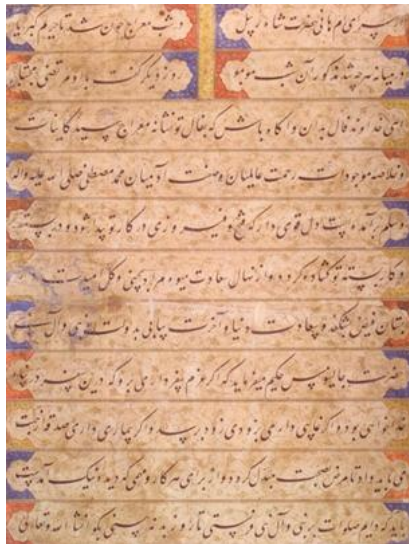 از سرای ام هانی حضرت شاه رسل در شب معراج چون شد تا حریم کبریا
در میانه هر چه شد مذکور آن شب مو بمو روز دیگر گفت با او مرتضی
ای خداوند فال بدان و آگاه باش که بفال تو نشانه معراج سید کاینات
و خلاصه موجودات رحمت عالمیان و مهتر آدمیان محمد مصطفی صلی الله علیه وآله
وسلم برآمده است دل قوی دار که فتح و فیروزی در کار تو پدید شود و در بسته
و کار بسته تو گشاده گردد و از نهال سعادت میوه مراد بچینی و گل امیدت
فیض بشکفد و سعادت دنیا و آخرت بیابی بدوست نبی وآل
حضرت جالینوس حکیم میفرماید که اگر عزم سفر داری برو که درین سفر
خواهی بود و اگر غایبی داری بزودی زود برسد و اگر بیماری داری صدقه
می باید داد تا مرض بصحت مبدل گردد و از برای هر کار نیک آمده است
باید که دایم صلوات بر نبی وآل نبی فرستی تا روز بد نبینی انشا الله وتعالی